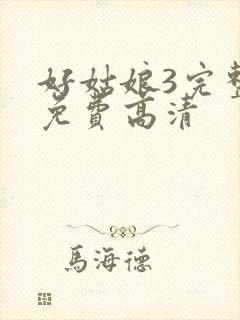 好姑娘3完整
免費高清
馬海德